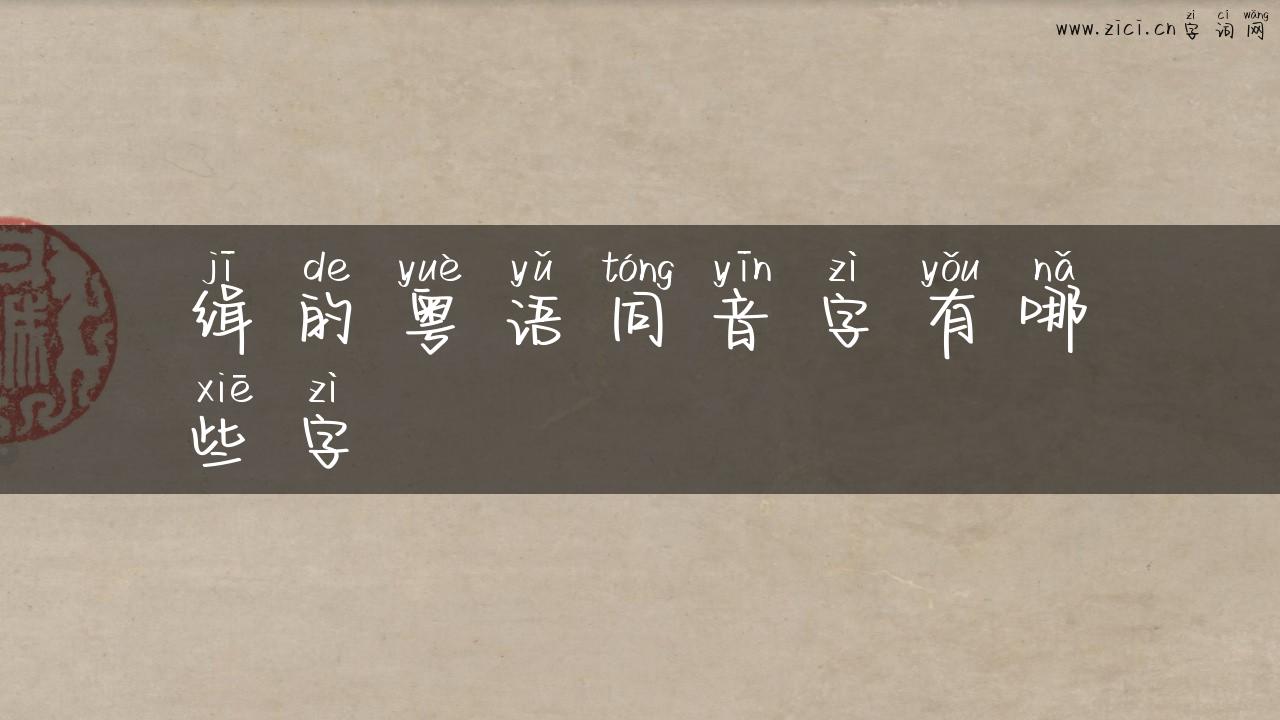 zì cí wǎng
www.zici.cn 字词网
jī de yuè yǔ tóng yīn zì yǒu nǎ
缉的粤语同音字有哪
xiē zì
些字